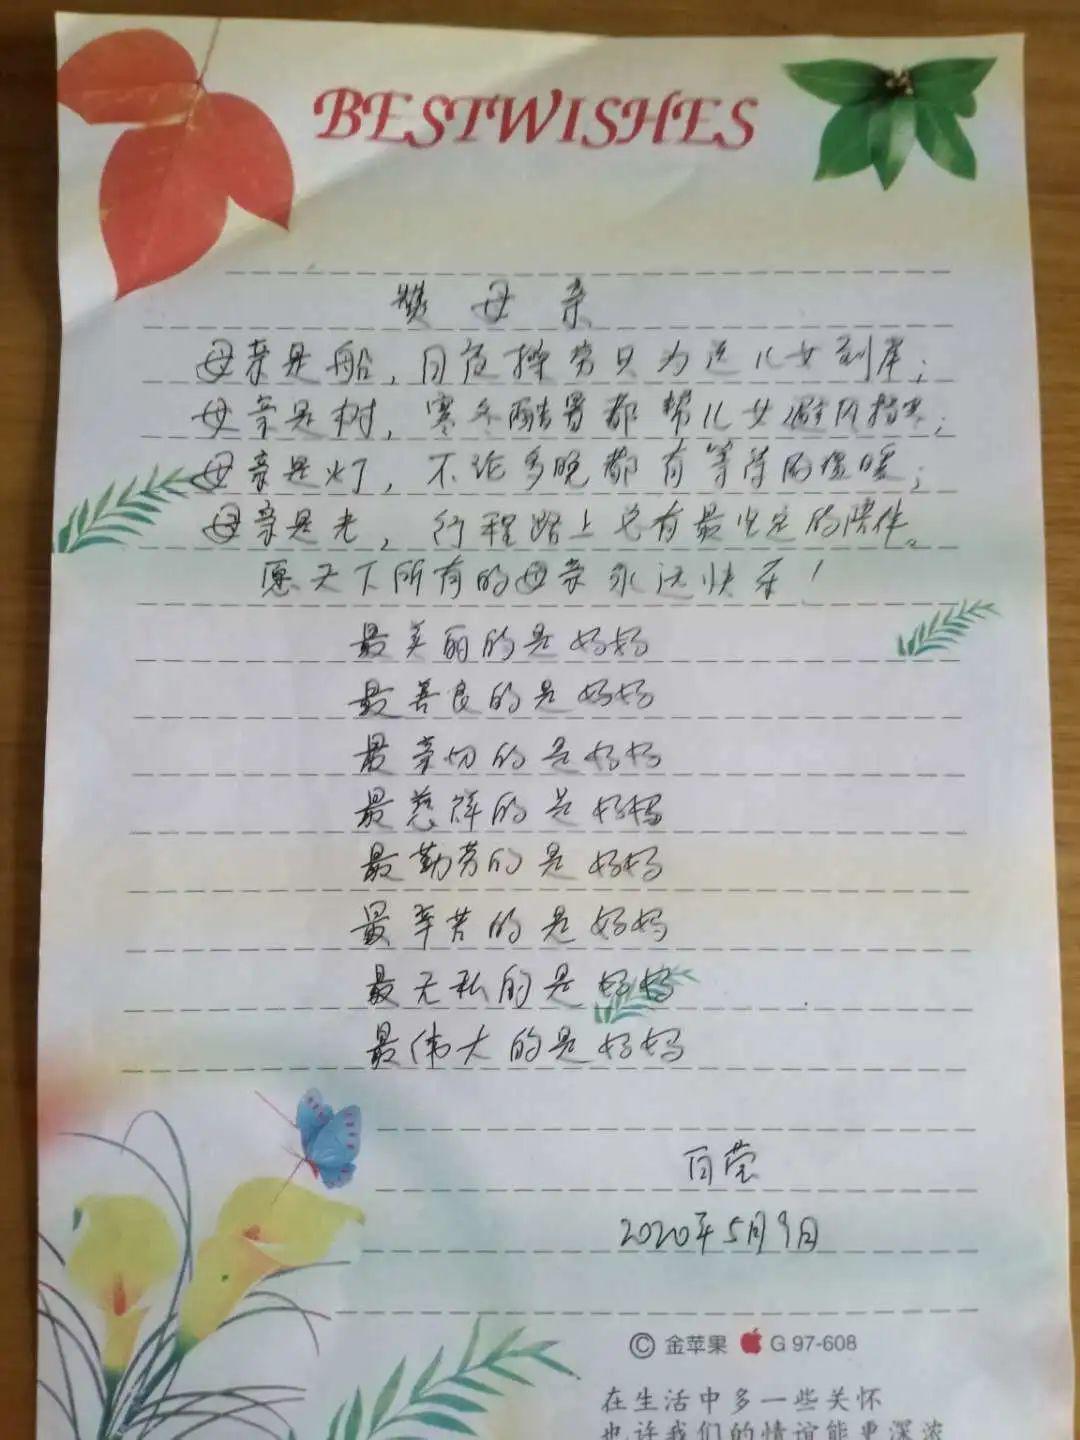 BESTWISHES
赞母亲
母亲是船，日夜操劳只为送儿女到岸；
母亲是树，寒冬酷暑都帮儿女避风挡寒；
母亲是灯，不论多晚都有等等的温暖；
母亲是光，行程路上总有最坚定的陪伴。
愿天下所有的母亲永远快乐！
最美丽的是妈妈
最善良的是妈妈
最亲切的是妈妈
最慈祥的是妈妈
最勤劳的是妈妈
最辛苦的是妈妈
最无私的是妈妈
最伟大的是妈妈
白莹
2020年5月9日
© 金苹果 G 97-608
在生活中多一些关怀
也许我们的情谊能更深浓